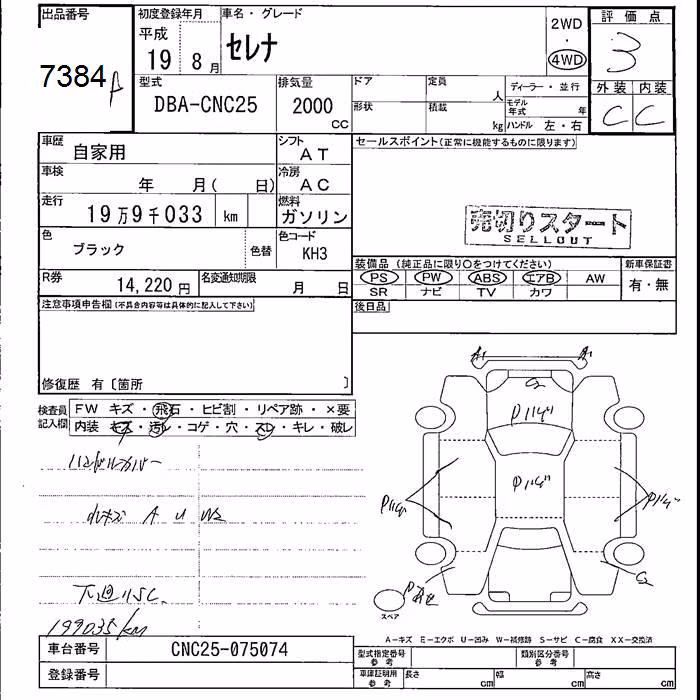 出品番号 初度登録年月 車名・グレード 2WD 評価点
平成 セレナ ・ 3
7384 A 19 8月 4WD
外装 内装
型式 排気量 ドア 定員 人 ディーラー・並行 C C
DBA-CNC25 2000 形状 積載 モデル年式 年
CC kg ハンドル 左・右
車歴 自家用 シフト AT セールスポイント(正常に機能するものに限ります)
車検 年 月( 日) 冷房 AC
走行 19万9千033 km 燃料 ガソリン 売切りスタート
SELLOUT
色 ブラック 色替 色コード KH3
装備品(純正品に限り○をつけてください) 新車保証書
R券 14,220円 名変通知期限 月 日 PS PW ABS エアB AW 有・無
SR ナビ TV カワ
注意事項申告欄(不具合内容等は具体的に記入して下さい) 後日品
修復歴 有〔箇所 〕
A1 A1
検査員 FW キズ・飛石・ヒビ割・リペア跡・×要
記入欄 内装 キズ・汚レ・コゲ・穴・スレ・キレ・破レ
ハンドルカバー
小キズ A U W2
下廻りSC
199035km
スペア
A-キズ E-エクボ U-凹み W-補修跡 S-サビ C-腐食 XX-交換済
車台番号 CNC25-075074 型式指定番号 参考 類別区分番号 参考
登録番号 車庫証明用 参考 長さ cm 幅 cm 高さ cm